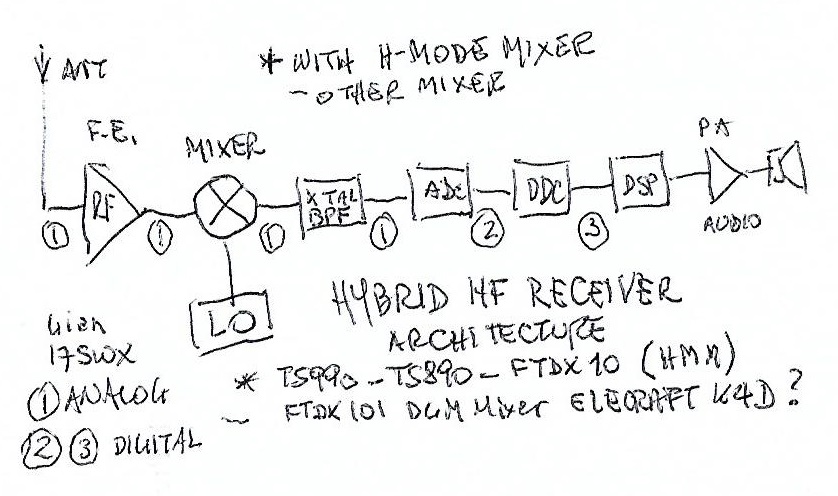 ANT
* WITH H-MODE MIXER
- OTHER MIXER
F.E.
MIXER
PA
RF
XTAL
BPF
ADC
DDC
DSP
① ① ① ① ② ③
AUDIO
LO
HYBRID HF RECEIVER
ARCHITECTURE
Gian
I7SWX
① ANALOG
② ③ DIGITAL
* TS990 - TS890 - FTDX10 (HMM)
- FTDX101 DGM Mixer ELECRAFT K4D?